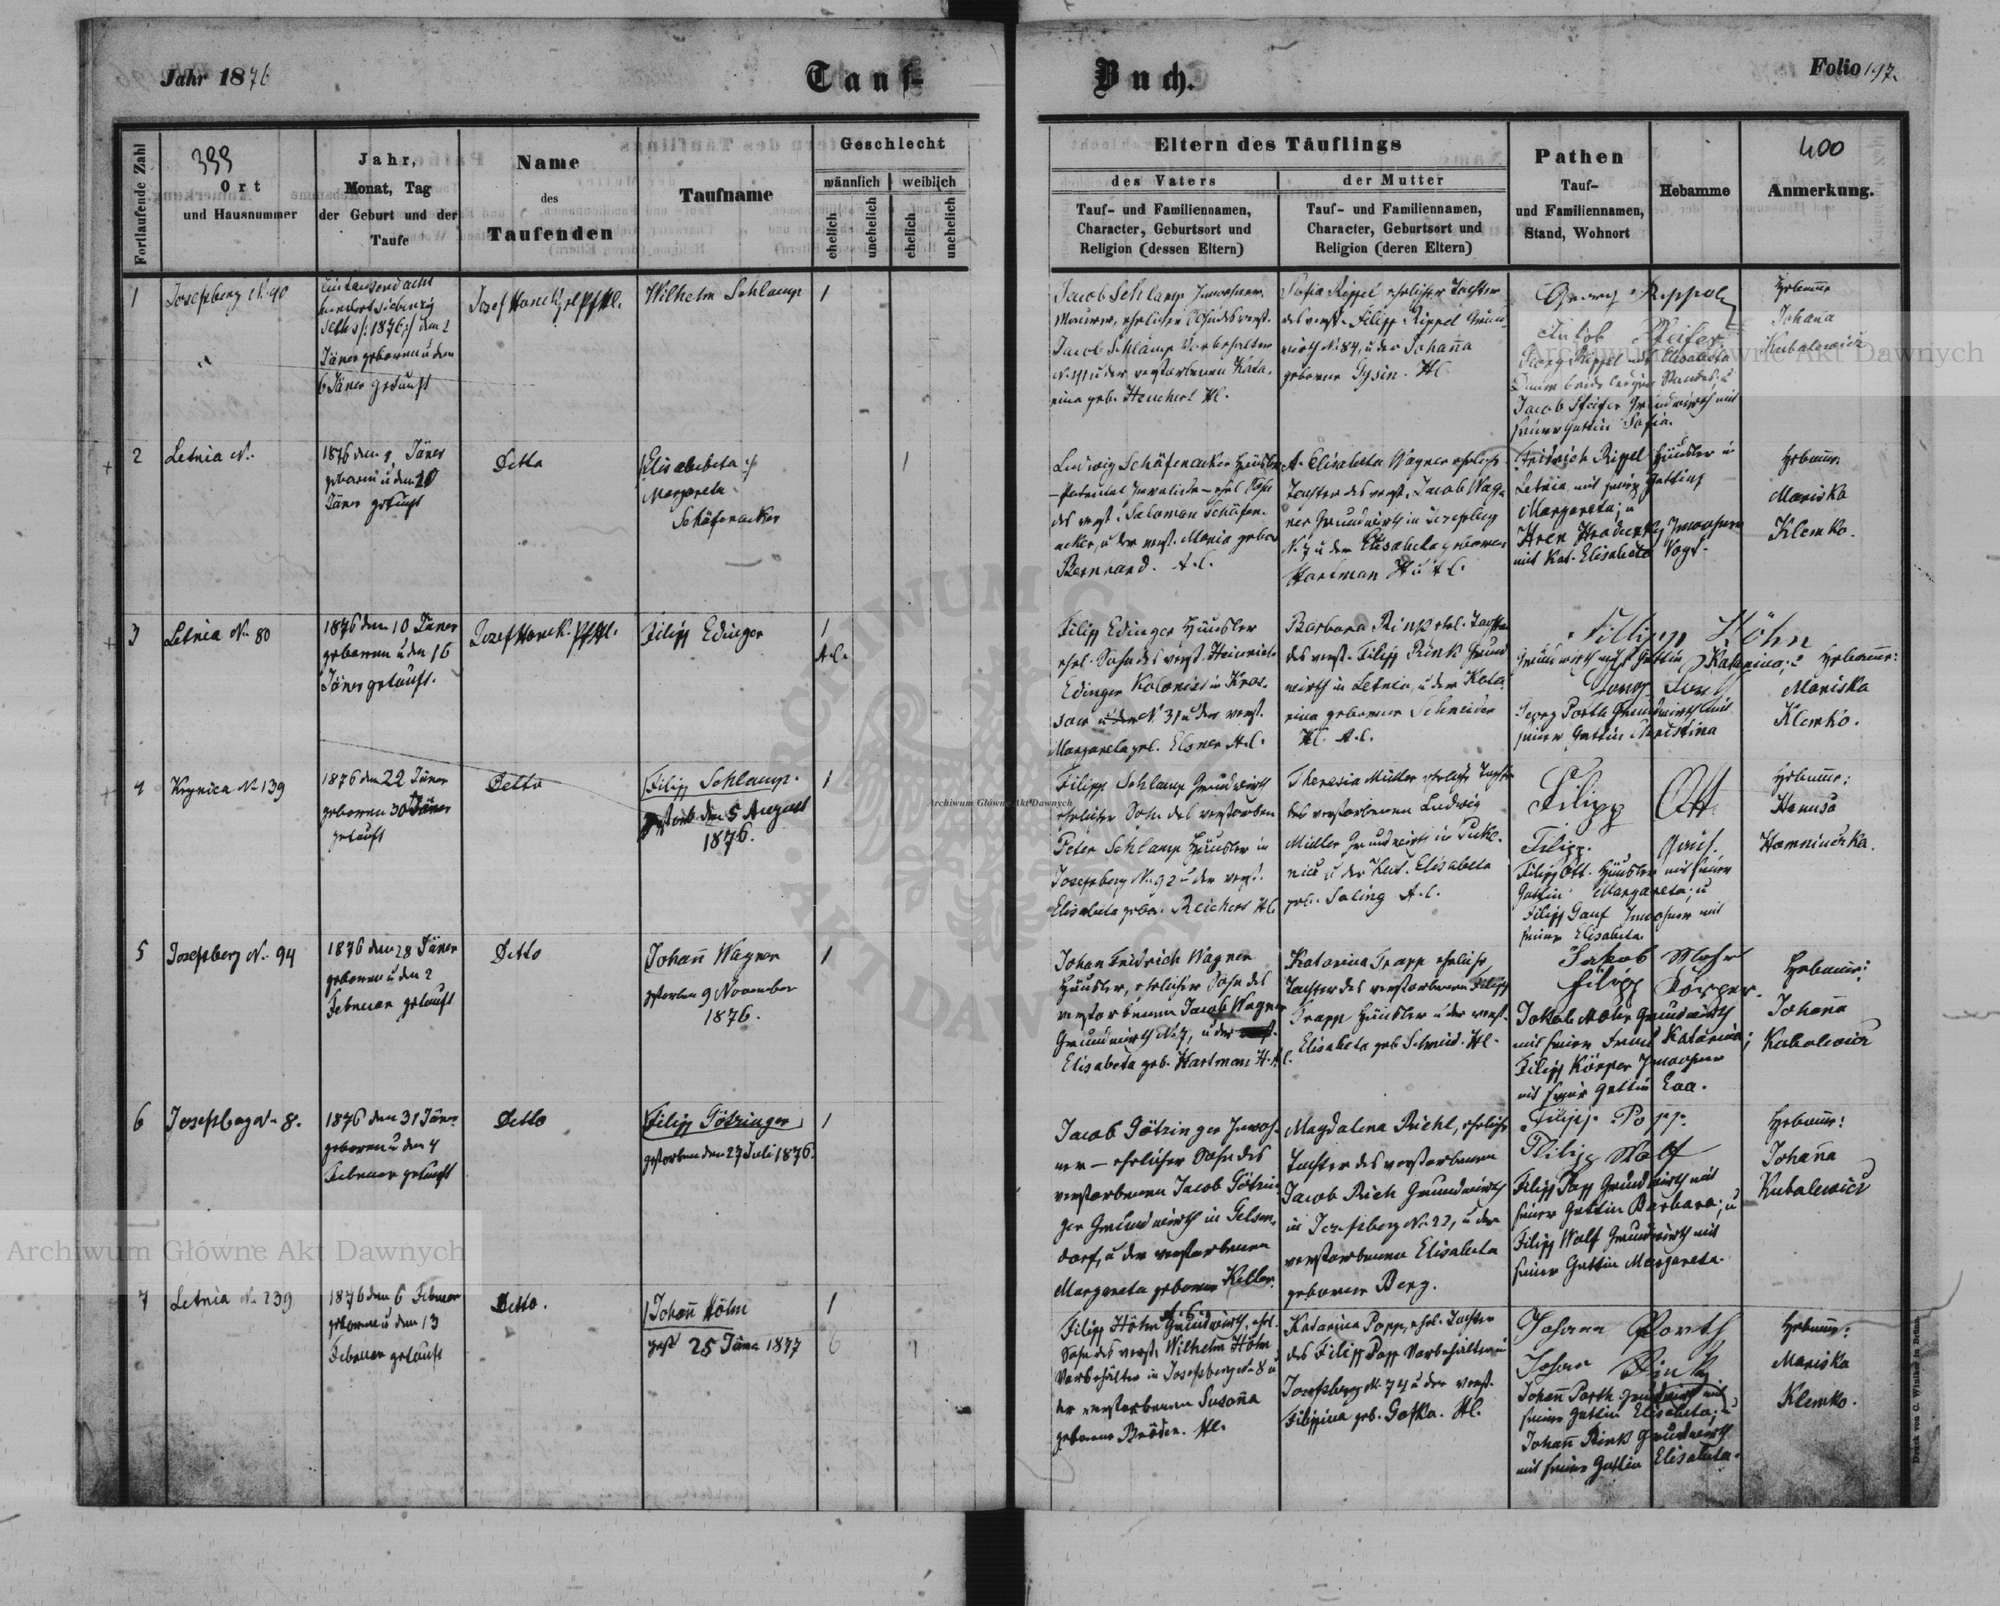 Jahr 1876
Tauf-
Buch.
Folio 197.
Fortlaufende Zahl
399
Ort
und Hausnummer
Jahr,
Monat, Tag
der Geburt und der
Taufe
Name
des
Taufenden
Taufname
Geschlecht
männlich
weiblich
ehelich
unehelich
ehelich
unehelich
Eltern des Täuflings
des Vaters
der Mutter
Tauf- und Familiennamen,
Character, Geburtsort und
Religion (dessen Eltern)
Tauf- und Familiennamen,
Character, Geburtsort und
Religion (deren Eltern)
Pathen
Tauf-
und Familiennamen,
Stand, Wohnort
Hebamme
400
Anmerkung.
1
Josefsberg N. 90
Eintausend acht
hundert siebenzig
sechs /:1876:/ den 2
Jäner geboren u den
6 Jäner getauft
Wilhelm Schlamp
1
Jacob Schlamp Inwohner
Maurer, ehelicher Sohn des verst.
Jacob Schlamp Vorbehalter
N. 41 u der verstorbenen Kata-
rina geb. Heuchert Hl.
Sofia Rippel eheliche Tochter
des verst. Filipp Rippel Grund-
wirth N. 84, u der Johanna
geborene Gysin. Hl.
Jacob Pfeifer Grundwirth mit
seiner Gattin Sofia.
Hebamme
Johana
Kubalewicz
2
Letnia N.
1876 den 9 Jäner
geboren u den 20
Jäner getauft
Detto
/Elisabeta:/
Margareta
Schäfenacker
1
Ludwig Schäfenacker Häusler
des verst. Salomon Schäfen-
acker, u der verst. Maria gebor
Bernhard. A.C.
A. Elisabeta Wagner ehelich
Tochter des verst. Jacob Wag-
ner Grundwirth in Josefsberg
N. 7 u der Elisabeta geborene
Hartman H u A.C.
Fridrich Rippel Häusler in
Letnia mit seiner Gattin
Margareta; u
mit Kat. Elisabeta Vogt.
Hebame:
Mariska
Klemko.
3
Letnia N. 80
1876 den 10 Jäner
geboren u den 16
Jäner getauft.
Filipp Edinger
1
A.C.
Filipp Edinger Häusler
ehel. Sohn des verst. Heinrich
Edinger Kolonist in
N. 31 u der verst.
Margareta geb. Elsner A.C.
Barbara Rink ehel. Tochter
des verst. Filipp Rink Grund
wirth in Letnia, u der Kata-
rina geborene Schneider
Hl. A.C.
Fillipp Höhn
Grundwirth mit Gattin Katarina; u
Georg Porth Grundwirth mit
seiner Gattin Christina
Hebame:
Mariska
Klemko.
4
Krynica N. 139
1876 den 22 Jäner
geboren 30 Jäner
getauft
Detto
/Filipp Schlamp.
gestorb den 5 August
1876.
1
Filipp Schlamp Grundwirth
ehelicher Sohn des verstorben
Peter Schlamp Häusler in
Josefsberg N. 92 u der verst.
Elisabeta gebor. Reichert Hl.
Theresia Müller ehelich Tochter
des verstorbenen Ludwig
Müller Grundwirth in
Elisabeta
geb. Saling A.C.
Filipp Ott
Filipp Ott. Häusler mit seiner
Gattin Margareta; u
Filipp Gauf Inwohner mit
seiner Elisabeta
Hebame:
Hanusa
Homniucka.
5
Josefsberg N. 94
1876 den 28 Jäner
geboren u den 2
Februar getauft
Detto
Johann Wagner
gestorben 9 November
1876.
1
Johan Fridrich Wagner
Häusler, ehelicher Sohn des
verstorbenen Jacob Wagner
Grundwirth N. 7, u der
Elisabeta geb. Hartman H. A.C.
Katarina Trapp ehelich
Tochter des verstorbenen Filipp
Trapp Häusler u der verst.
Elisabeta geb. Schmid. Hl.
Jakob Mohr
Filipp Körper.
Jakob Mohr Grundwirth
mit seiner Frau Katarina;
Filipp Körper Inwohner
mit seiner Gattin Eva.
Hebame:
Johana
Kubalewicz
6
Josefsberg N. 8.
1876 den 31 Jäner
geboren u den 4
Februar getauft
Detto
/Filipp Götzinger/
gestorben den 27 Juli 1876.
1
Jacob Götzinger Inwoh-
ner – ehelicher Sohn des
verstorbenen Jacob Götzin-
ger Grundwirth in Gelsen-
dorf, u der verstorbenen
Margareta geboren Keller.
Magdalena Riehl, ehelich
Tochter des verstorbenen
Jacob Rieh Grundwirth
in Josefsberg N. 22, u der
verstorbenen Elisabeta
geborene Berg.
Filipp Popp.
Philipp Wolf
Filipp Popp Grundwirth mit
seiner Gattin Barbara; u
Filipp Wolf Grundwirth mit
seiner Gattin Margareta.
Hebame:
Johana
Kubalewicz
7
Letnia N. 239
1876 den 6 Februar
geboren u den 13
Februar getauft
Detto.
/Johann Höhn
gest 25 Jäner 1877
1
6
1
Filipp Höhn Grundwirth, ehel.
Sohn des verst. Wilhelm Höhn
Vorbehälter in Josefsberg N. 8 u
der verstorbenen Susanna
geborene Bröder. Hl.
Katarina Popp, ehel. Tochter
des Filipp Popp Vorbehälter in
Josefsberg N. 74 u der verst.
Filippina geb. Gofka. Hl.
Johann Porth
Johan Rink
Johann Porth Grundwirth mit
seiner Gattin Elisabeta; u
Johann Rink Grundwirth
mit seiner Gattin Elisabeta.
Hebame:
Mariska
Klemko.
Druck von C. Winiker in Brünn.
Archiwum Główne Akt Dawnych
Archiwum Główne Akt Dawnych
Archiwum Główne Akt Dawnych